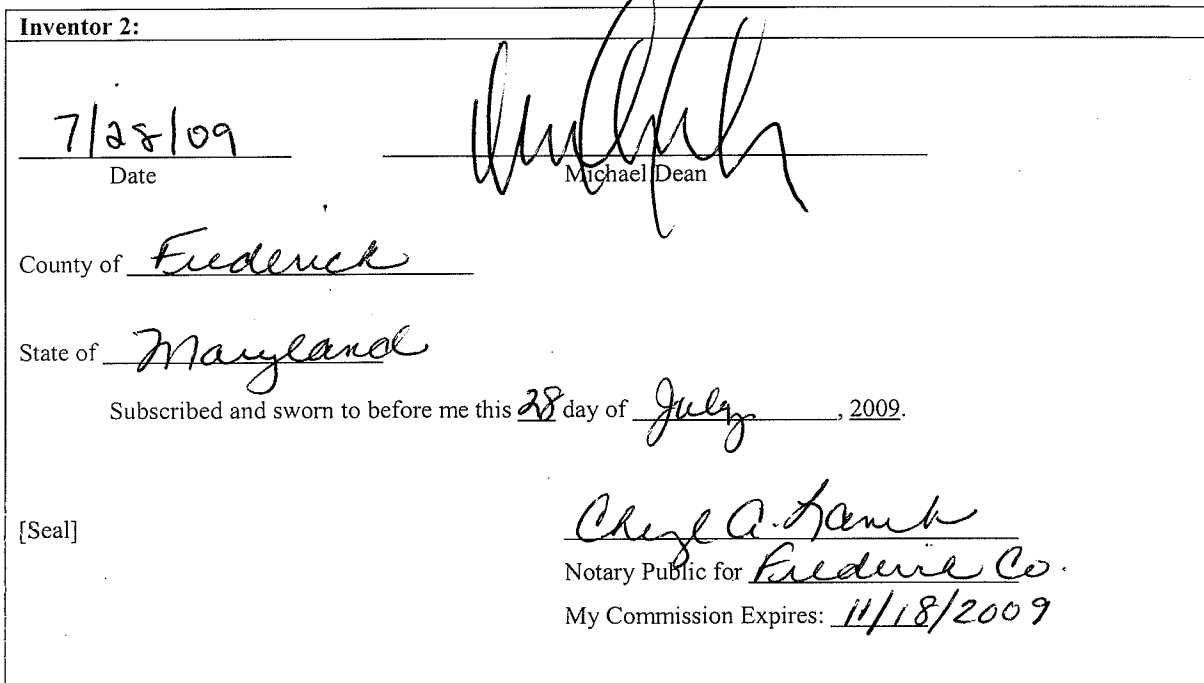 Inventor 2:
7/28/09
Date
Michael Dean
County of Frederick
State of Maryland
Subscribed and sworn to before me this 28 day of July, 2009.
[Seal]
Cheryl A.
Notary Public for Frederick Co.
My Commission Expires: 11/18/2009